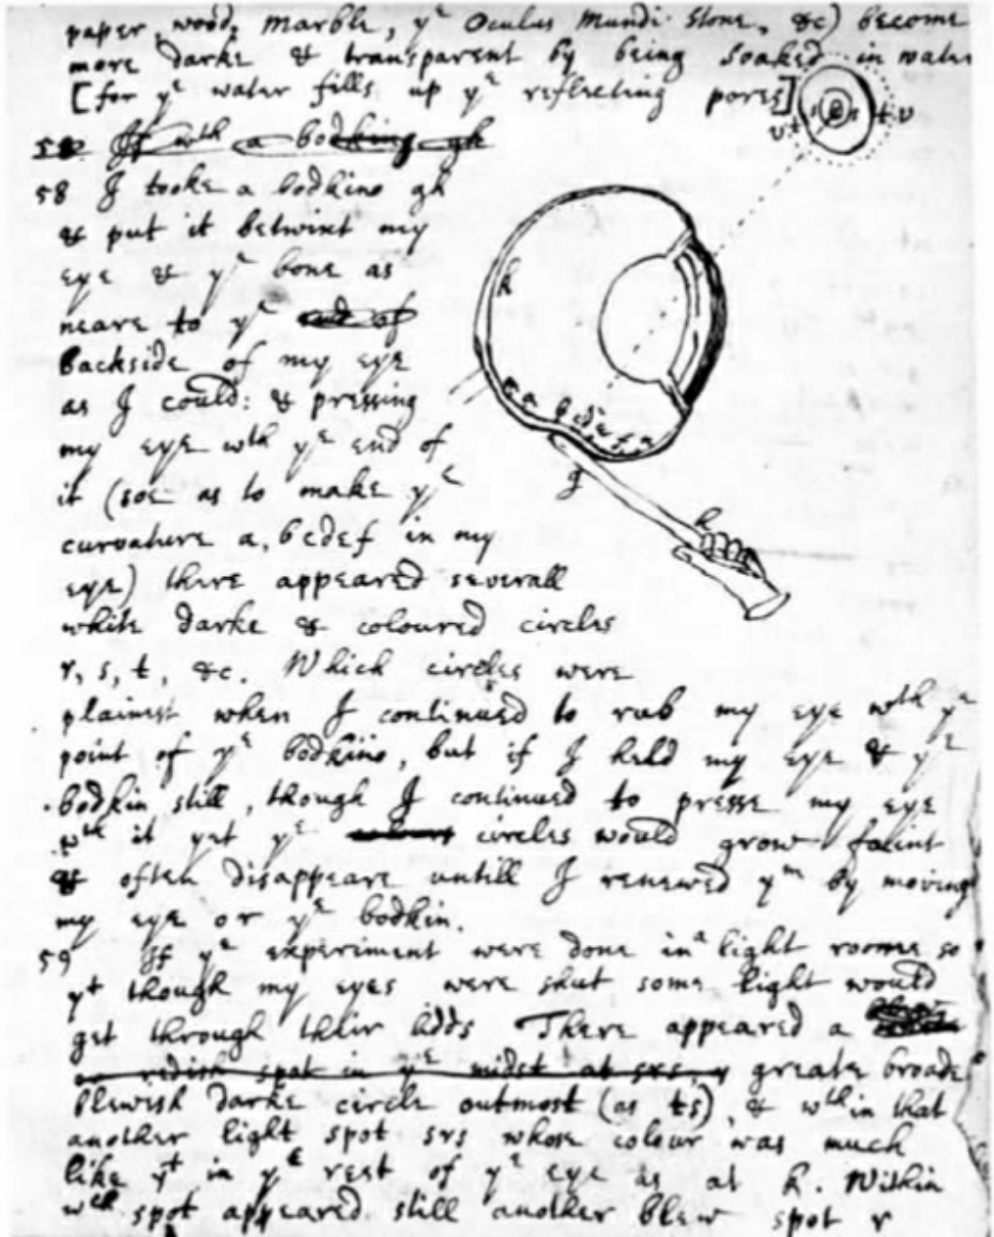 paper, wood, marble, yᵉ Oculus Mundi Stone, &c) become
more darke & transparent by being soaked in water
[for yᵉ water fills up yᵉ reflecting pores]
58 If wᵗʰ a bodking gh
58 I tooke a bodkine gh
& put it betwixt my
eye & yᵉ bone as
neare to yᵉ end of
backside of my eye
as I could: & pressing
my eye wᵗʰ yᵉ end of
it (soe as to make yᵉ
curvature a, bcdef in my
eye) there appeared severall
white darke & coloured circles
r, s, t, &c. Which circles were
plainest when I continued to rub my eye wᵗʰ yᵉ
point of yᵉ bodkine, but if I held my eye & yᵉ
bodkin still, though I continued to presse my eye
wᵗʰ it yet yᵉ circles would grow faint
& often disappeare untill I renewed yᵐ by moving
my eye or yᵉ bodkin.
59 If yᵉ experiment were done in a light roome so
yᵗ though my eyes were shut some light would
get through their lidds There appeared a
redish spot in yᵉ midst at srs, greate broade
blewish darke circle outmost (as ts), & wᵗʰin that
another light spot srs whose colour was much
like yᵗ in yᵉ rest of yᵉ eye as at k. Within
wᶜʰ spot appeared still another blew spot r
v t s s t v
k
a b c d e f
g
h